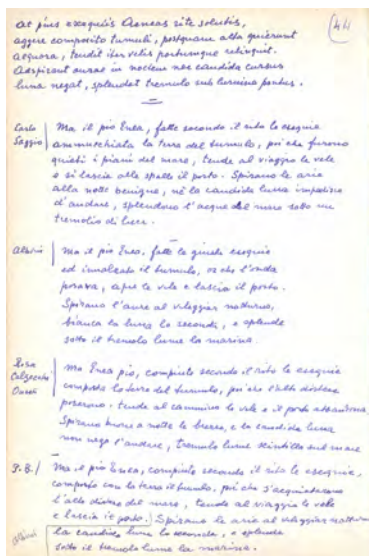 At pius exequiis Aeneas rite solutis,
aggere composito tumuli, postquam alta quierunt
aequora, tendit iter velis portumque relinquit.
Adspirant aurae in noctem nec candida cursus
luna negat, splendet tremulo sub lumine pontus.
44
Carlo Saggio
Ma il pio Enea, fatte secondo il rito le esequie
ammucchiata la terra del tumulo, poi che furono
quieti i piani del mare, tende al viaggio le vele
e si lascia alle spalle il porto. Spirano le arie
alla notte benigne, nè la candida luna impedisce
d'andare, splendono l'acque del mare sotto un
tremolio di luce.
Albini
Ma il pio Enea, fatte le giuste esequie
ed innalzato il tumulo, or che l'onda
posava, apre le vele e lascia il porto.
Spirano l'aure al veleggiar notturno,
bianca la luna lo seconda, e splende
sotto il tremolo lume la marina.
Rosa Calzecchi Onesti
Ma Enea pio, compiute secondo il rito le esequie
composta la terra del tumulo, poi che l'alte distese
posarono, tende al cammino le vele e il porto abbandona.
Spirano buone a notte le brezze, e la candida luna
non nega l'andare, tremulo lume scintilla sul mare
P. B.
Ma il pio Enea, compiute secondo il rito le esequie,
composto con la terra il tumulo, poi che s'acquietarono
l'alte distese del mare, tende al viaggio le vele
e lascia il porto. Spirano le arie al veleggiar notturno
Albini
la candida luna lo seconda, e splende
sotto il tremolo lume la marina.